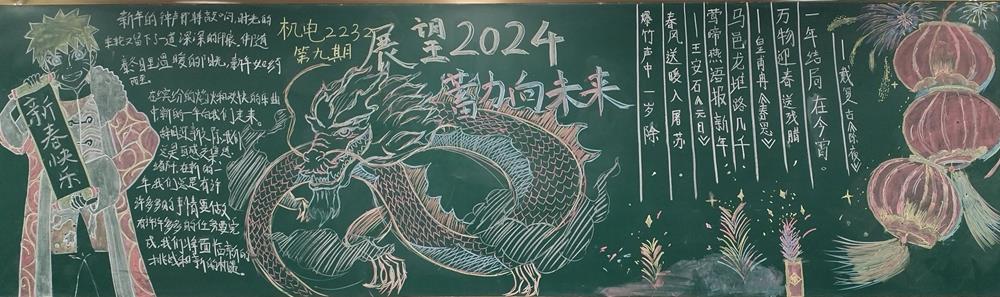 新春快乐
新年的钟声即将敲响,时光的
车轮又留下了一道深深的印痕。伴随
着冬日里温暖的阳光,新年如约
而至
在缤纷的焰火和欢快的
新的一年向我们走来。
年我们还是有许
许多多的事情要做
有许许多多的任务要完
成,我们将面临新的
挑战和新的机遇
机电2232
第九期
展望2024
蓄力向未来
一年结局在今宵。
——戴复古《除夜》
万物迎春送残腊,
——皇甫冉《春思》
马邑龙堆路几千。
莺啼燕语报新年,
——王安石《元日》
春风送暖入屠苏
爆竹声中一岁除,